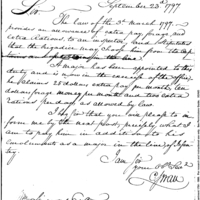 September 23d 1797
Sir
The Law of the 3d March 1797.
provides an allowance of extra pay, forage and
extra Rations, to an inspector, and stipulates
that the brigadier may chuse him from the
A Major has been appointed to this
duty and is now in the exercise of the office
he claims 25 dollars extra pay per month, ten
dollars forage money per month and two extra
rations per day as allowed by law.
I beg Sir that you will please to in
form me by the next post, precisely what I
am to pay him in addition to his
emoluments as a major in the line of Infan
try
I am Sir
your
Swan